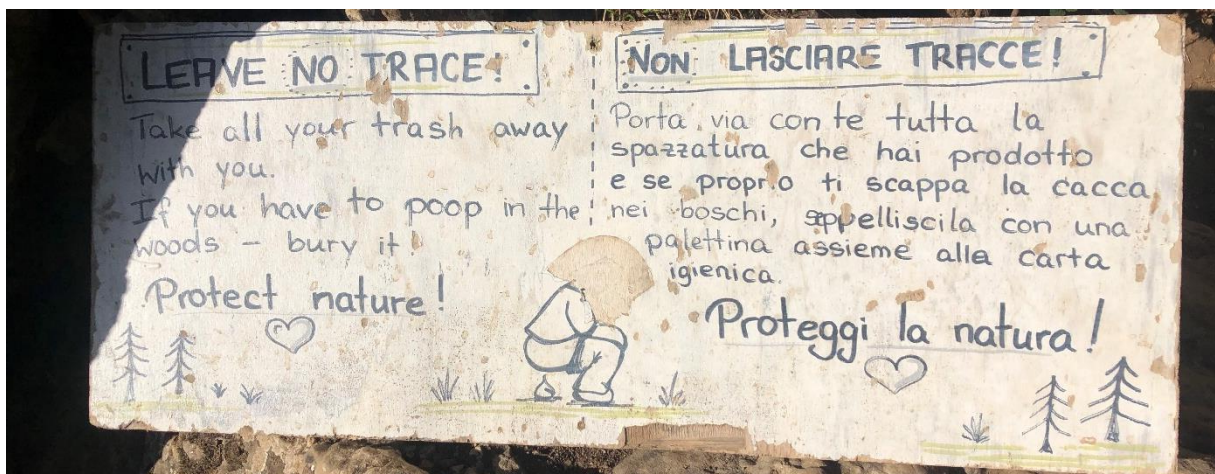 LEAVE NO TRACE!
Take all your trash away
with you.
If you have to poop in the
woods – bury it!
Protect nature!
NON LASCIARE TRACCE!
Porta via con te tutta la
spazzatura che hai prodotto
e se proprio ti scappa la cacca
nei boschi, seppelliscila con una
palettina assieme alla carta
igienica.
Proteggi la natura!